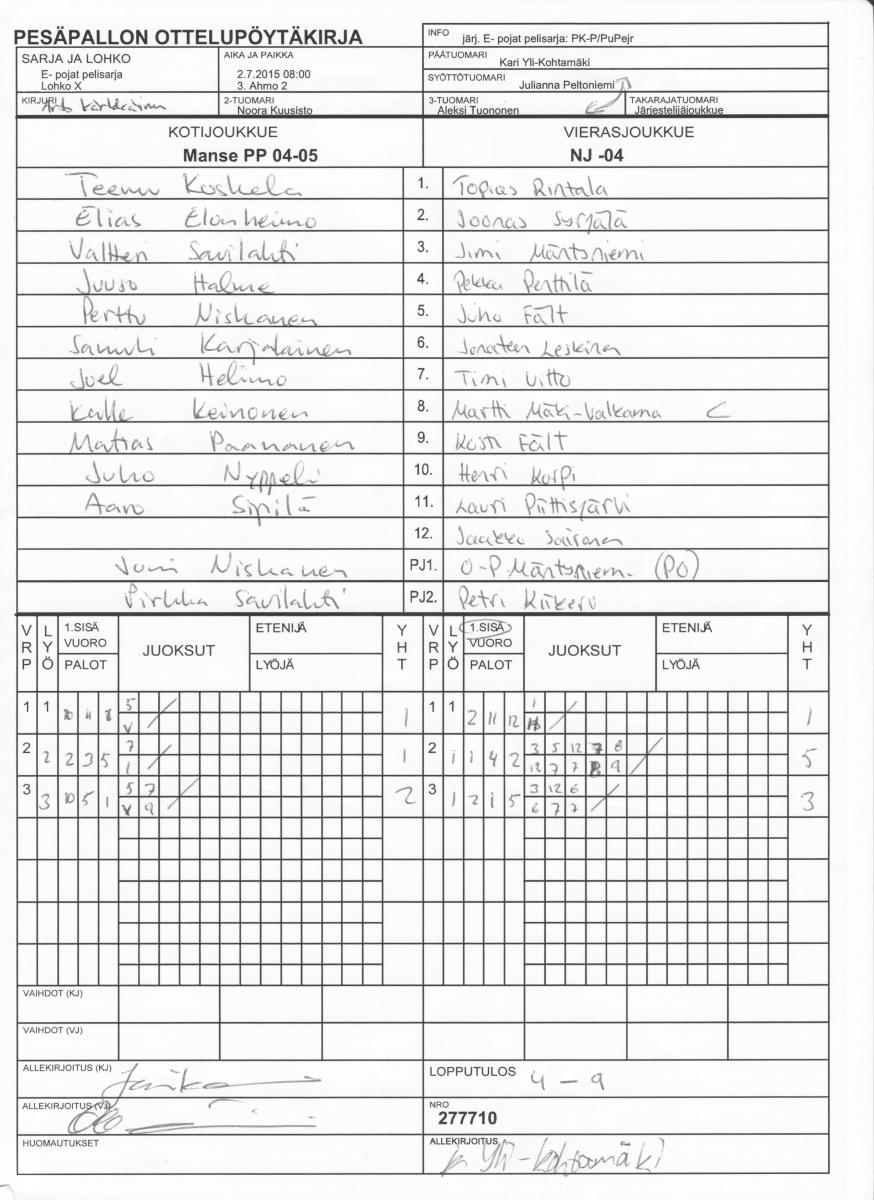 PESÄPALLON OTTELUPÖYTÄKIRJA
INFO järj. E- pojat pelisarja: PK-P/PuPejr
SARJA JA LOHKO
E- pojat pelisarja
Lohko X
AIKA JA PAIKKA
2.7.2015 08:00
3. Ahmo 2
PÄÄTUOMARI
Kari Yli-Kohtamäki
SYÖTTÖTUOMARI
Julianna Peltoniemi
KIRJURI
2-TUOMARI
Noora Kuusisto
3-TUOMARI
Aleksi Tuononen
TAKARAJATUOMARI
Järjestelijäjoukkue
KOTIJOUKKUE
Manse PP 04-05
VIERASJOUKKUE
NJ -04
Teemu Koskela 1. Topias Rintala
Elias Elonheimo 2. Joonas Syrjälä
Valtteri Savilahti 3. Jimi Mäntyniemi
Juuso Halme 4. Pekka Perttilä
Perttu Niskanen 5. Juho Fält
Samuli Karjalainen 6. Jonatan Leskinen
Joel Helimo 7. Timi Uitto
Kalle Keinonen 8. Martti Mäki-Valkama C
Matias Paananen 9. Kosti Fält
Juho Nyppeli 10. Henri Korpi
Aaro Sipilä 11. Lauri Piittisjärvi
12. Jaakko Sairanen
Jumi Niskanen PJ1. O-P. Mäntyniemi (PO)
Pirkka Savilahti PJ2. Petri Kiikeri
VRP LYÖ 1.SISÄ VUORO PALOT JUOKSUT ETENIJÄ LYÖJÄ YHT VRP LYÖ 1.SISÄ VUORO PALOT JUOKSUT ETENIJÄ LYÖJÄ YHT
5 1
1 1 10 11 V / 1 1 1 2 11 12 / 1
7 3 5 12 7 8
2 2 2 3 5 1 / 1 2 1 1 4 2 12 7 7 8 9 / 5
5 7 3 12 6
3 3 10 5 1 V 9 / 2 3 1 2 1 5 6 7 7 / 3
VAIHDOT (KJ)
VAIHDOT (VJ)
ALLEKIRJOITUS (KJ)
LOPPUTULOS 4 – 9
ALLEKIRJOITUS (VJ)
NRO
277710
HUOMAUTUKSET
ALLEKIRJOITUS
Yli-Kohtamäki